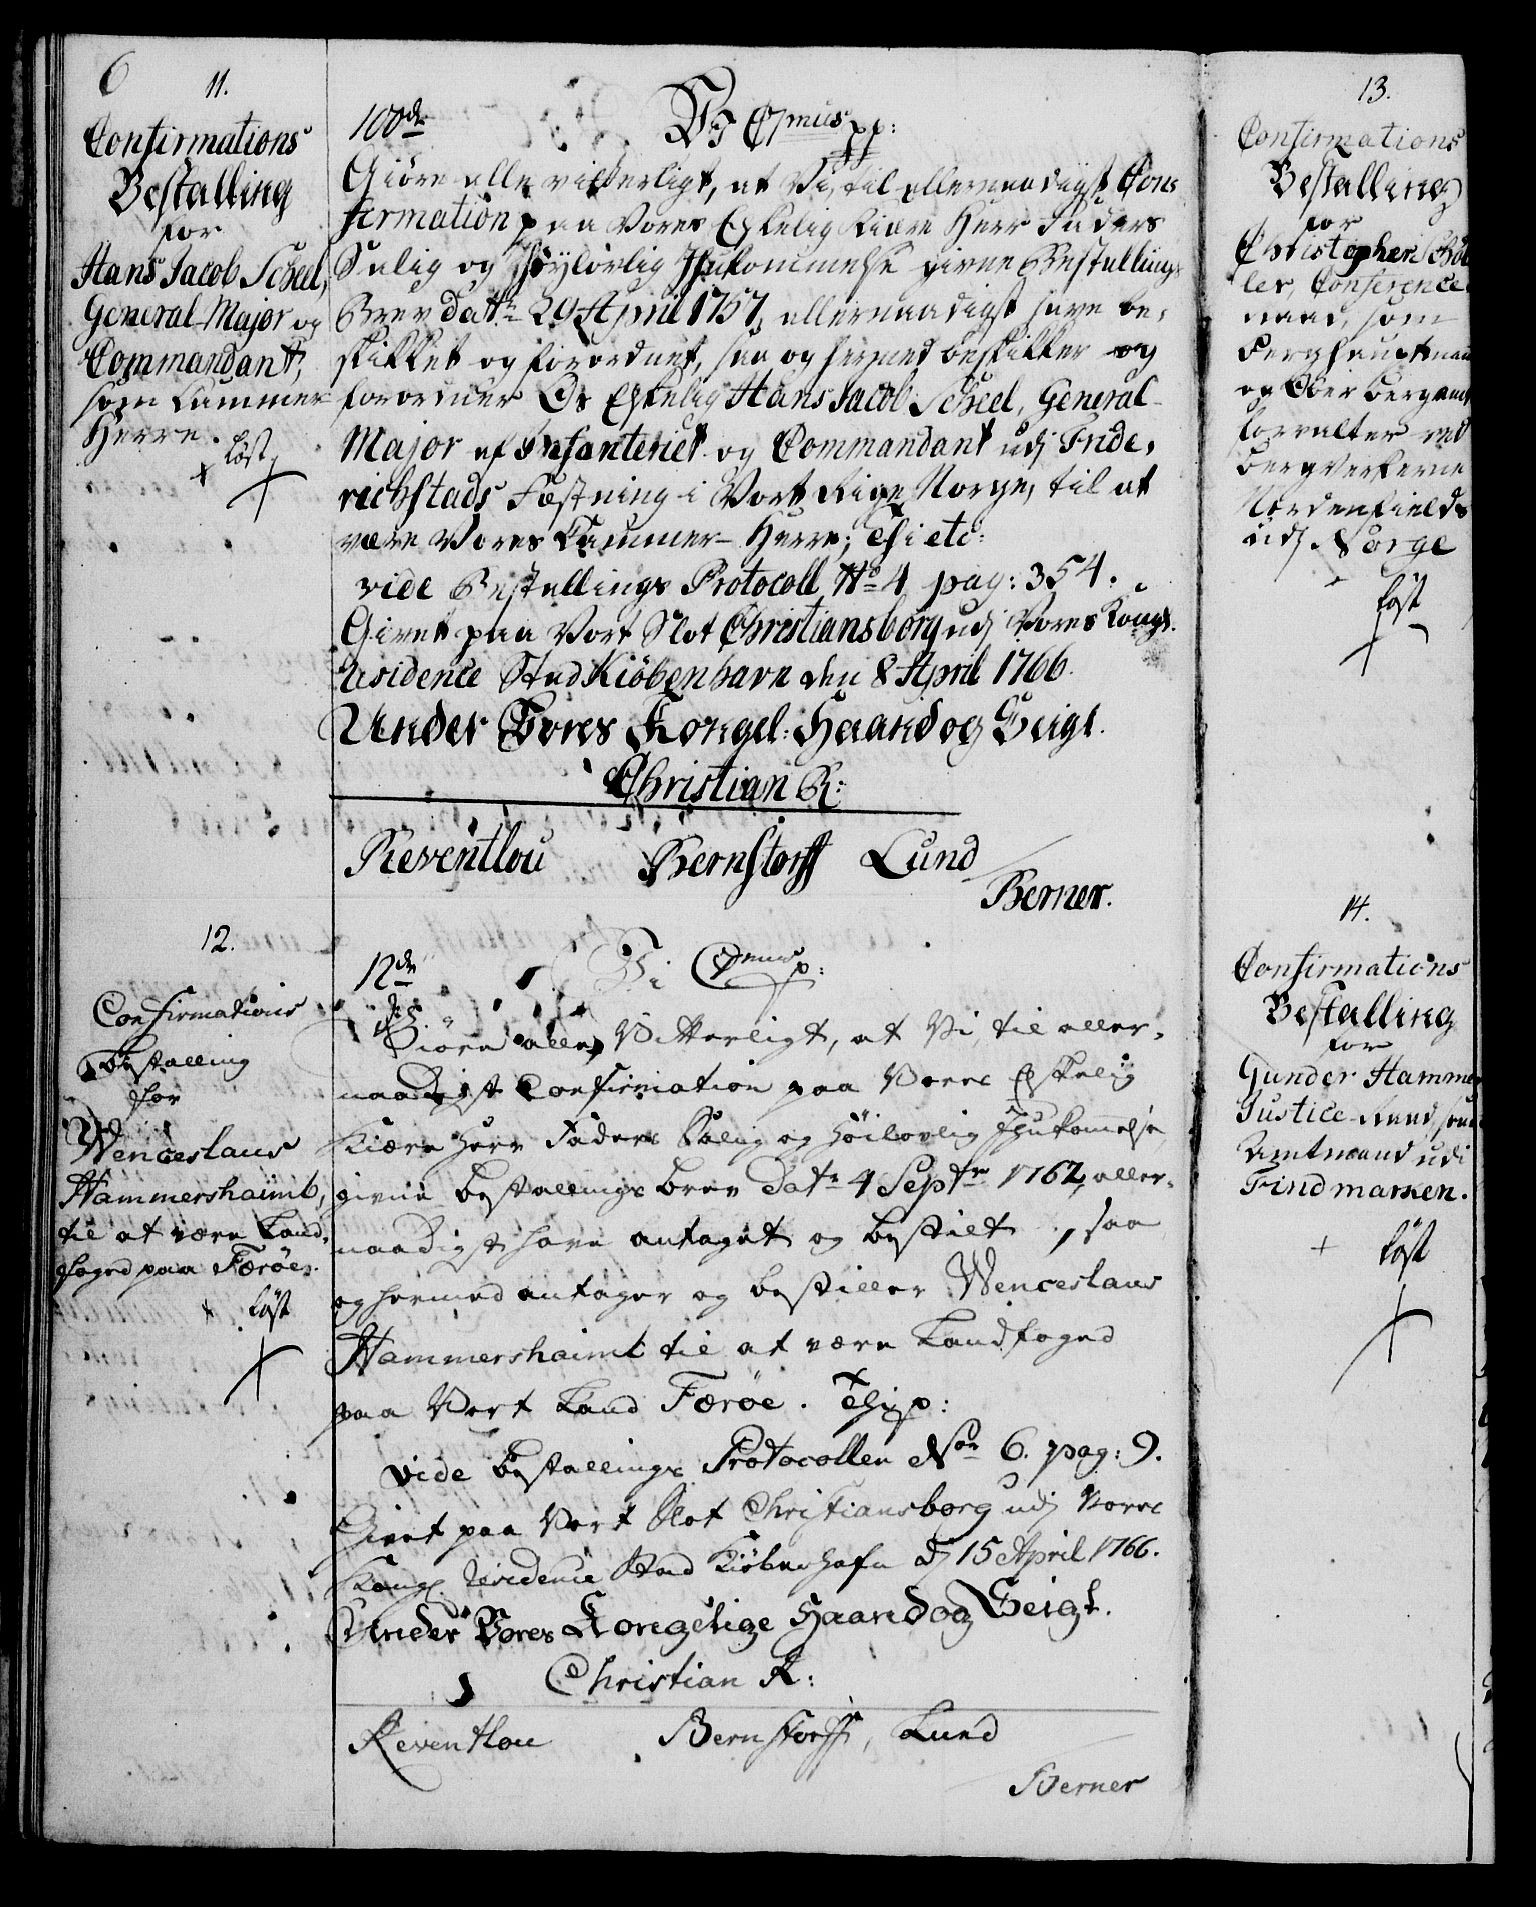 6
11.
Confirmations
Bestalling
for
Hans Jacob Scheel,
General-Major og
Commandant,
som Cammer
Herre.
löst
100de
Vi C7mus pp:
Giöre alle vitterligt, at Vi, til allernaadigst Con=
firmation paa Vores Elskelig Kiære Herr Faders
Salig og Höylovlig Ihukommelse givne Bestallings
Brev Datr 29 April 1757, allernaadigst have be=
skikket og forordnet, saa og hermed beskikker og
forordner Os Elskelig Hans Jacob Scheel, General-
Major af Infanteriet og Commandant udj Fride=
richstads Fæstning i Vort Rige Norge, til at
være Vores Cammer-Herre; Thi etc:
vide Bestallings Protocoll No 4 pag: 354.
Givet paa Vort Slot Christiansborg udj Vores Kongl.
Residence Stad Kiöbenhavn den 8 April 1766.
Under Vores Kongel: Haand og Seigl.
Christian R:
Reventlou Bernstorff Lund
Berner.
12.
Confirmations
Bestalling
for
Wenceslaus
Hammershaimb,
til at være Land=
foged paa Færöe.
löst
12de
Vi C7mus p:
Giöre alle Vitterligt, at Vi til aller=
naadigst Confirmation paa Vores Elskelig
Kiære Herr Faders Salig og Höilovlig Ihukomelse
givne Bestallings Brev Datr 4 Septr 1762, aller=
naadigst have antaget og bestilt, saa
og hermed antager og bestiller Wenceslaus
Hammershaimb til at være Landfoged
paa Vort Land Færöe. Thi p:
vide Bestallings Protocollen Nor 6. pag: 9.
Givet paa Vort Slot Christiansborg udj Vores
Kongl Residence Stad Kiöbenhafn dj 15 April 1766.
Under Vores Kongelige Haand og Seigl.
Christian R:
Reventlou Bernstorff, Lund
Berner
13.
Confirmations
Bestalling
for
Christopher
ler, Conference
raad, som
Berghauptman
og Ober Bergamts
forvalter ved
Bergverkerne
Nordenfields
udj Norge
löst
14.
Confirmations
Bestalling
for
Gunder Hammer
Justice-Raad som
Amtmand udi
Findmarken.
löst